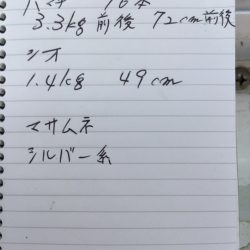 ハマチ 16本
3.3kg前後 72cm前後
シオ
1.4kg 49cm
マサムネ
シルバー系